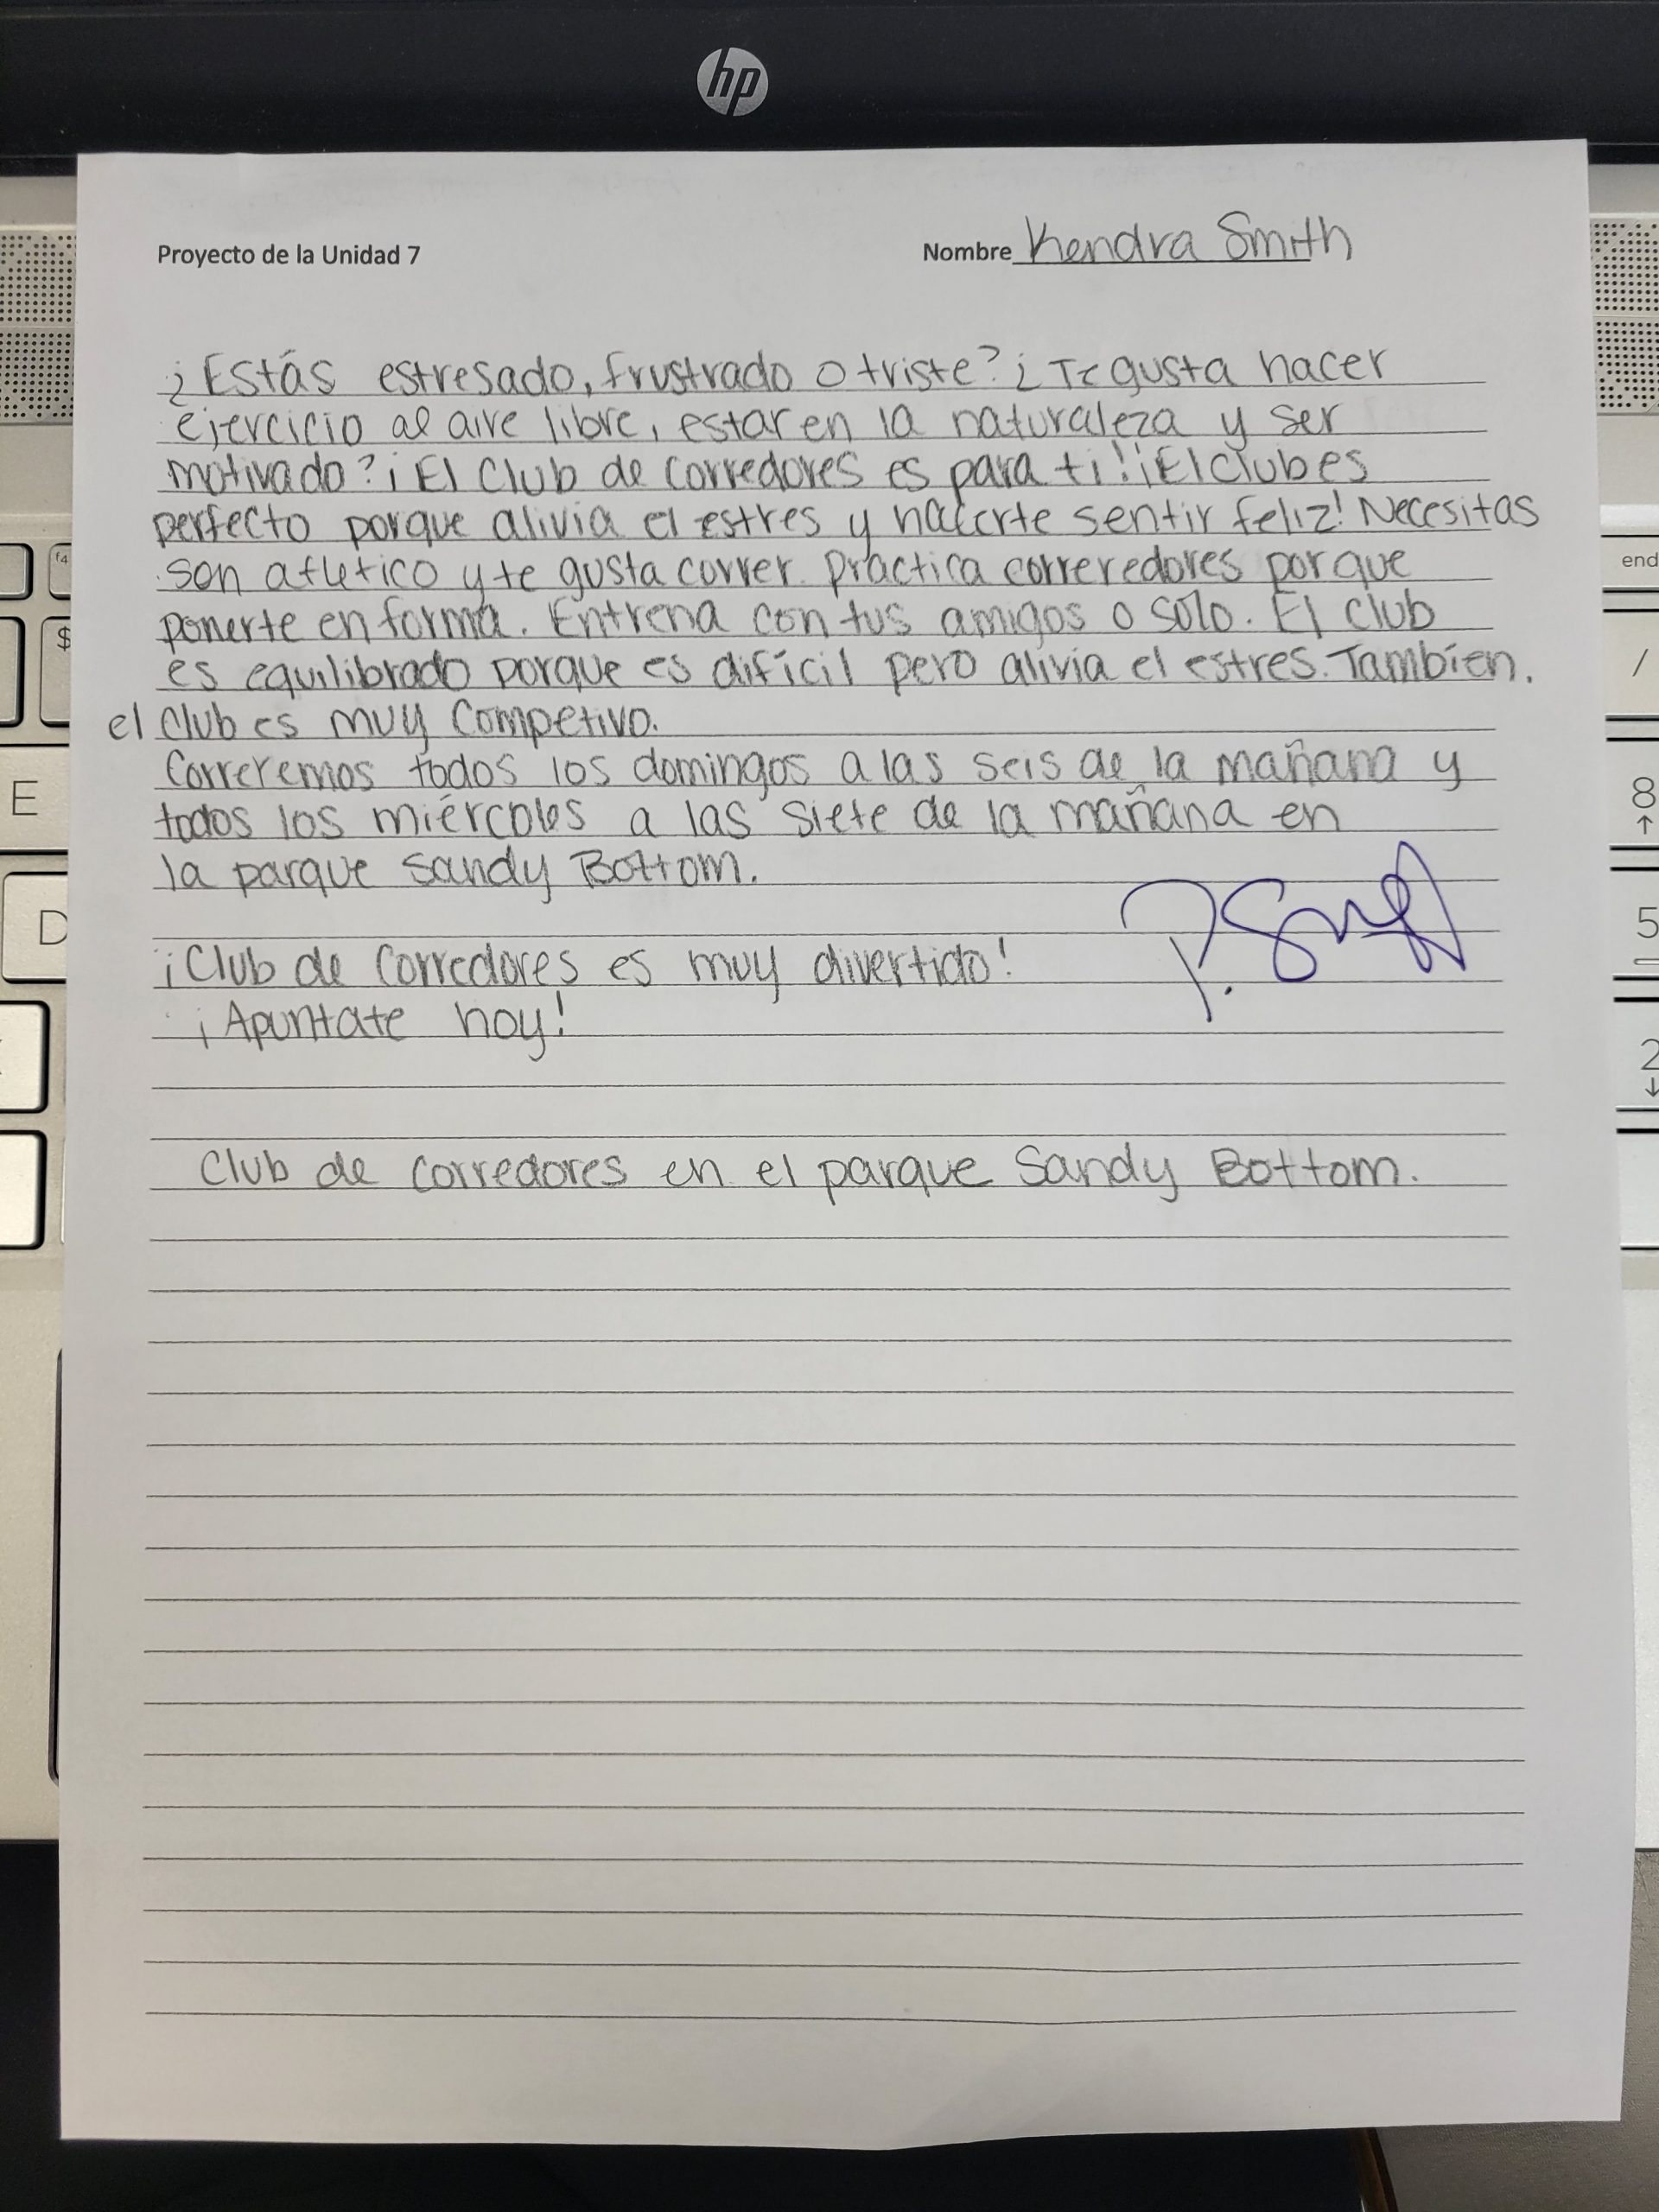 hp
Proyecto de la Unidad 7 Nombre Kendra Smith
¿Estás estresado, frustrado o triste? ¿Te gusta hacer
ejercicio al aire libre, estar en la naturaleza y ser
motivado? ¡El Club de corredores es para ti! ¡El club es
perfecto porque alivia el estres y hacerte sentir feliz! Necesitas
son atletico y te gusta correr. Practica correredores porque
ponerte en forma. Entrena con tus amigos o solo. El club
es equilibrado porque es difícil pero alivia el estres. Tambien.
el club es muy Competivo.
Correremos todos los domingos a las seis de la mañana y
todos los miércoles a las siete de la mañana en
la parque Sandy Bottom.
¡Club de Corredores es muy divertido!
¡Apuntate hoy!
Club de corredores en el parque Sandy Bottom.
f4
$
E
D
end
/
8
5
2